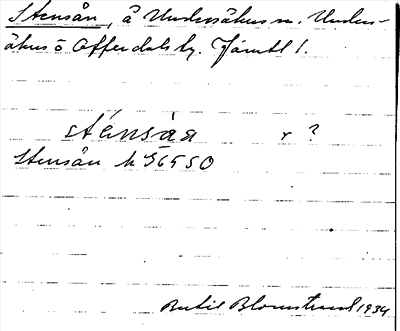 Stensån, å Undersåkers sn. Unders-
åkers o Offerdals tg. Jämtl l.
sténsåa r ?
Stensån k G5650
Bertil Blomstrand 1934